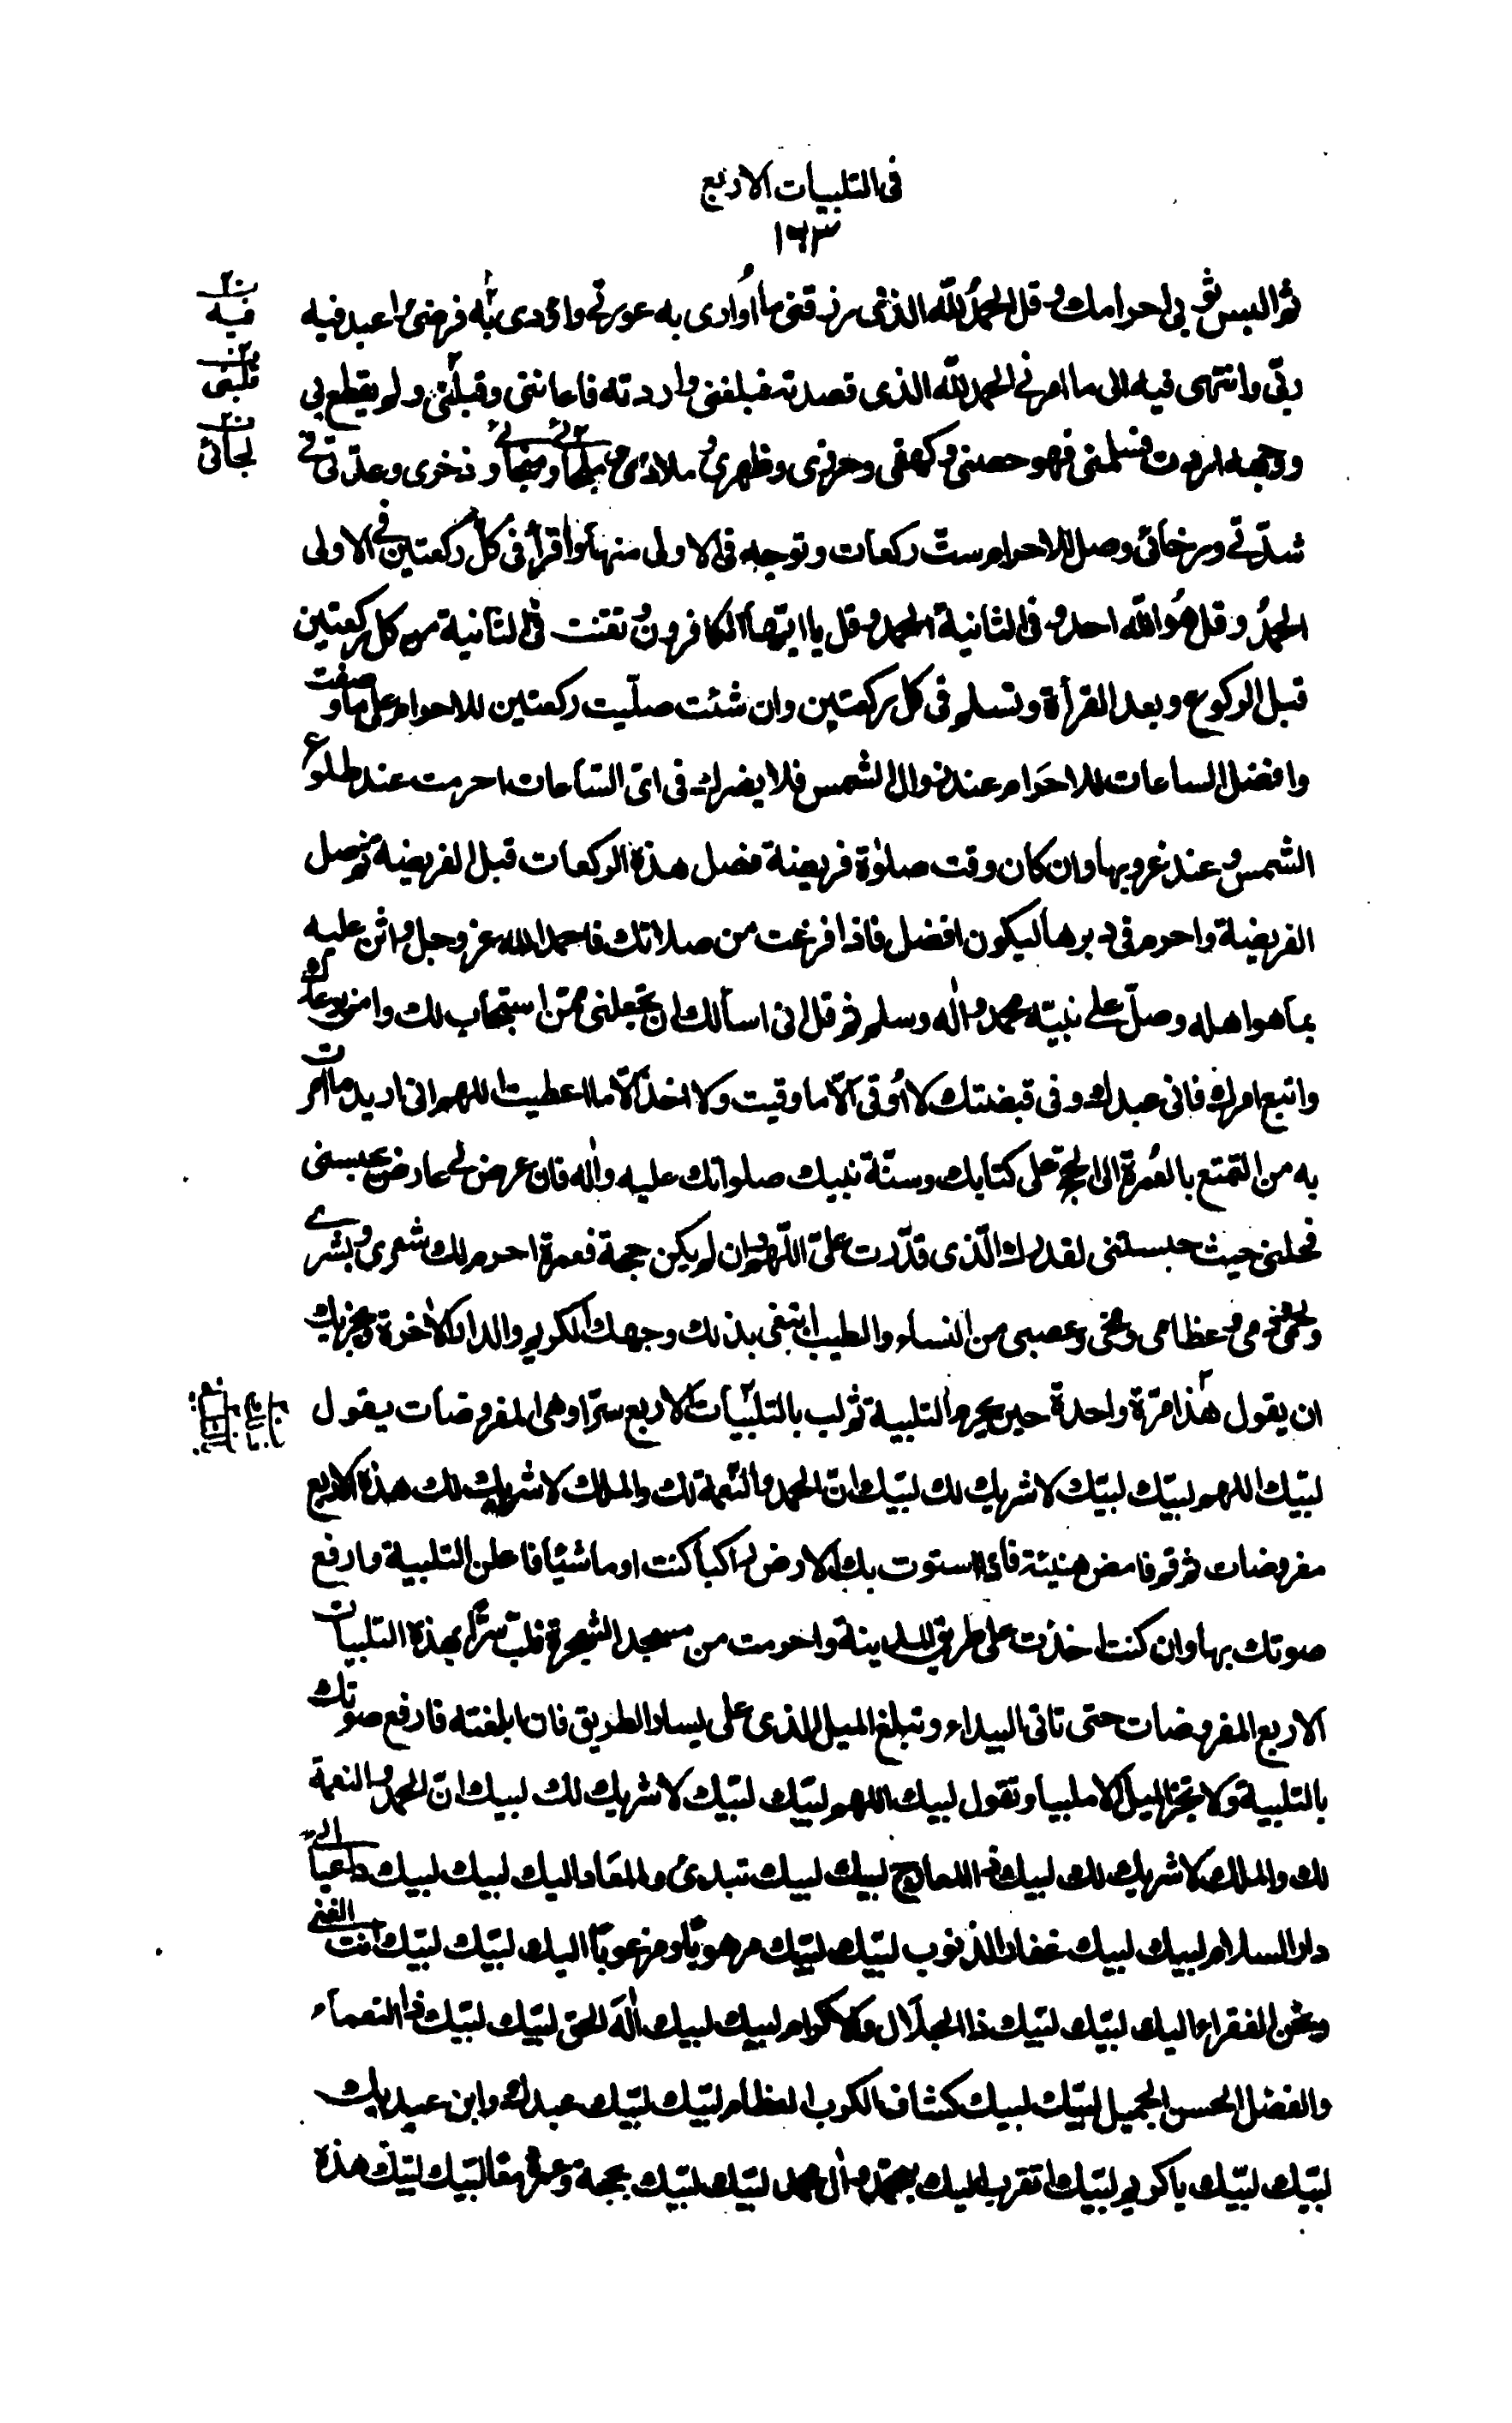 فى التلبيات الاربع
١٦٣
ثم البس ثوبى احرامك و قل الحمد لله الذى رزقنى ما اُوارى به عورتى واؤدى به فرضى و اعبد فيه
ربّى وانتهى فيه الى ما امرنى الحمد لله الذى قصدته فبلغنى واردته فاعاننى وقبلنى ولم يقطع بى
ووجهه اردت فسلمنى فهو حصنى و كهفى وحرزى وظهرى و ملاذى و ملجائى ومنجائى وذخرى وعدّتى فى
شدّتى ورخائى وصل للاحرام ستّ ركعات وتوجه فى الاولى منها واقرأ فى كلّ ركعتين فى الاولى
الحمدُ وقل هُو اللّه احد و فى الثانية الحمد و قل يا ايّها الكافرون و تقنت فى الثانية من كل ركعتين
قبل الركوع وبعد القرأة وتسلم فى كل ركعتين وان شئت صلّيت ركعتين للاحرام على ما وصفت
وافضل الساعات للاحرام عند زوال الشمس فلا يضرك فى اىّ السّاعات احرمت عند طلوع
الشمس و عند غروبها وان كان وقت صلوٰة فريضة فصل هذه الركعات قبل الفريضة ثم صل
الفريضة واحرم فى دبرها ليكون افضل فاذا فرغت من صلاتك فاحمد الله عز وجل واثن عليه
بما هو اهله وصلّ على نبيّه محمد و اٰله وسلم ثم قل انى اسألك ان تجعلنى ممّن استجاب لك وامن بوعدك
واتبع امرك فانى عبدك وفى قبضتك لا اُوقى الّا ما وقيت ولا اخذ الّا ما اعطيت اللهم انى اريد ما امرت
به من التمتع بالعُمرة الى الحج على كتابك وسنّة نبيك صلواتك عليه واٰله فان عرض لى عارض يحبسنى
فحلنى حيث حبستنى لقدرك الّذى قدّرت علىّ اللّهم و ان لم يكن حجة فعمرة احرم لك شعرى و بشرى
ولحمى و دمى و عظامى و مخى و عصبى من النساء والطيب ابتغى بذلك وجهك الكريم والدار الاٰخرة ويجزيك
ان يقول هذا مرّة واحدة حين يحرم التلبية ثم لب بالتلبيات الاربع سرّا وهى المفروضات يقول
لبّيك اللهم لبيّك لبيّك لا شريك لك لبيّك انّ الحمد و النّعمة لك والملك لا شريك لك هذه الاربع
مفروضات ثم قم فامض هنيئة فاذا استوت بك الارض راكباً كنت او ماشيًا فاعلن التلبية وارفع
صوتك بها وان كنت اخذت على طريق المدينة واحرمت من مسجد الشجرة فلبّ سرًّا بهذه التلبيات
الاربع المفروضات حتى تاتى البيداء وتبلغ الميل الذى على يسار الطريق فاذا بلغته فارفع صوتك
بالتلبية ولا تجز الميل الا ملبيا وتقول لبيك اللهم لبيّك لبيّك لا شريك لك لبيك انّ الحمد و النعمة
لك والملك لا شريك لك لبيك ذا المعارج لبيك لبيك تبدئ والمعاد اليك لبيك لبيك داعياً الى
دار السلام لبيك لبيك غفار الذنوب لبيّك لبيّك مرهوبًا ومرغوبًا اليك لبيّك لبيّك انت الغنى
ونحن الفقراء اليك لبيّك لبيّك ذا الجلال والاكرام لبيك لبيك اٰلٰه الحق لبيّك لبيّك ذا النعماء
والفضل الحسن الجميل لبيّك لبيك كشاف الكرب العظام لبيّك لبيّك عبدك وابن عبديك
لبيّك لبيّك يا كريم لبيّك اتقرب اليك بمحمّد و اٰل محمد لبيّك لبيّك بحجة وعمرة معا لبيّك لبيّك هذه
فيه
قلبنى
لجائى